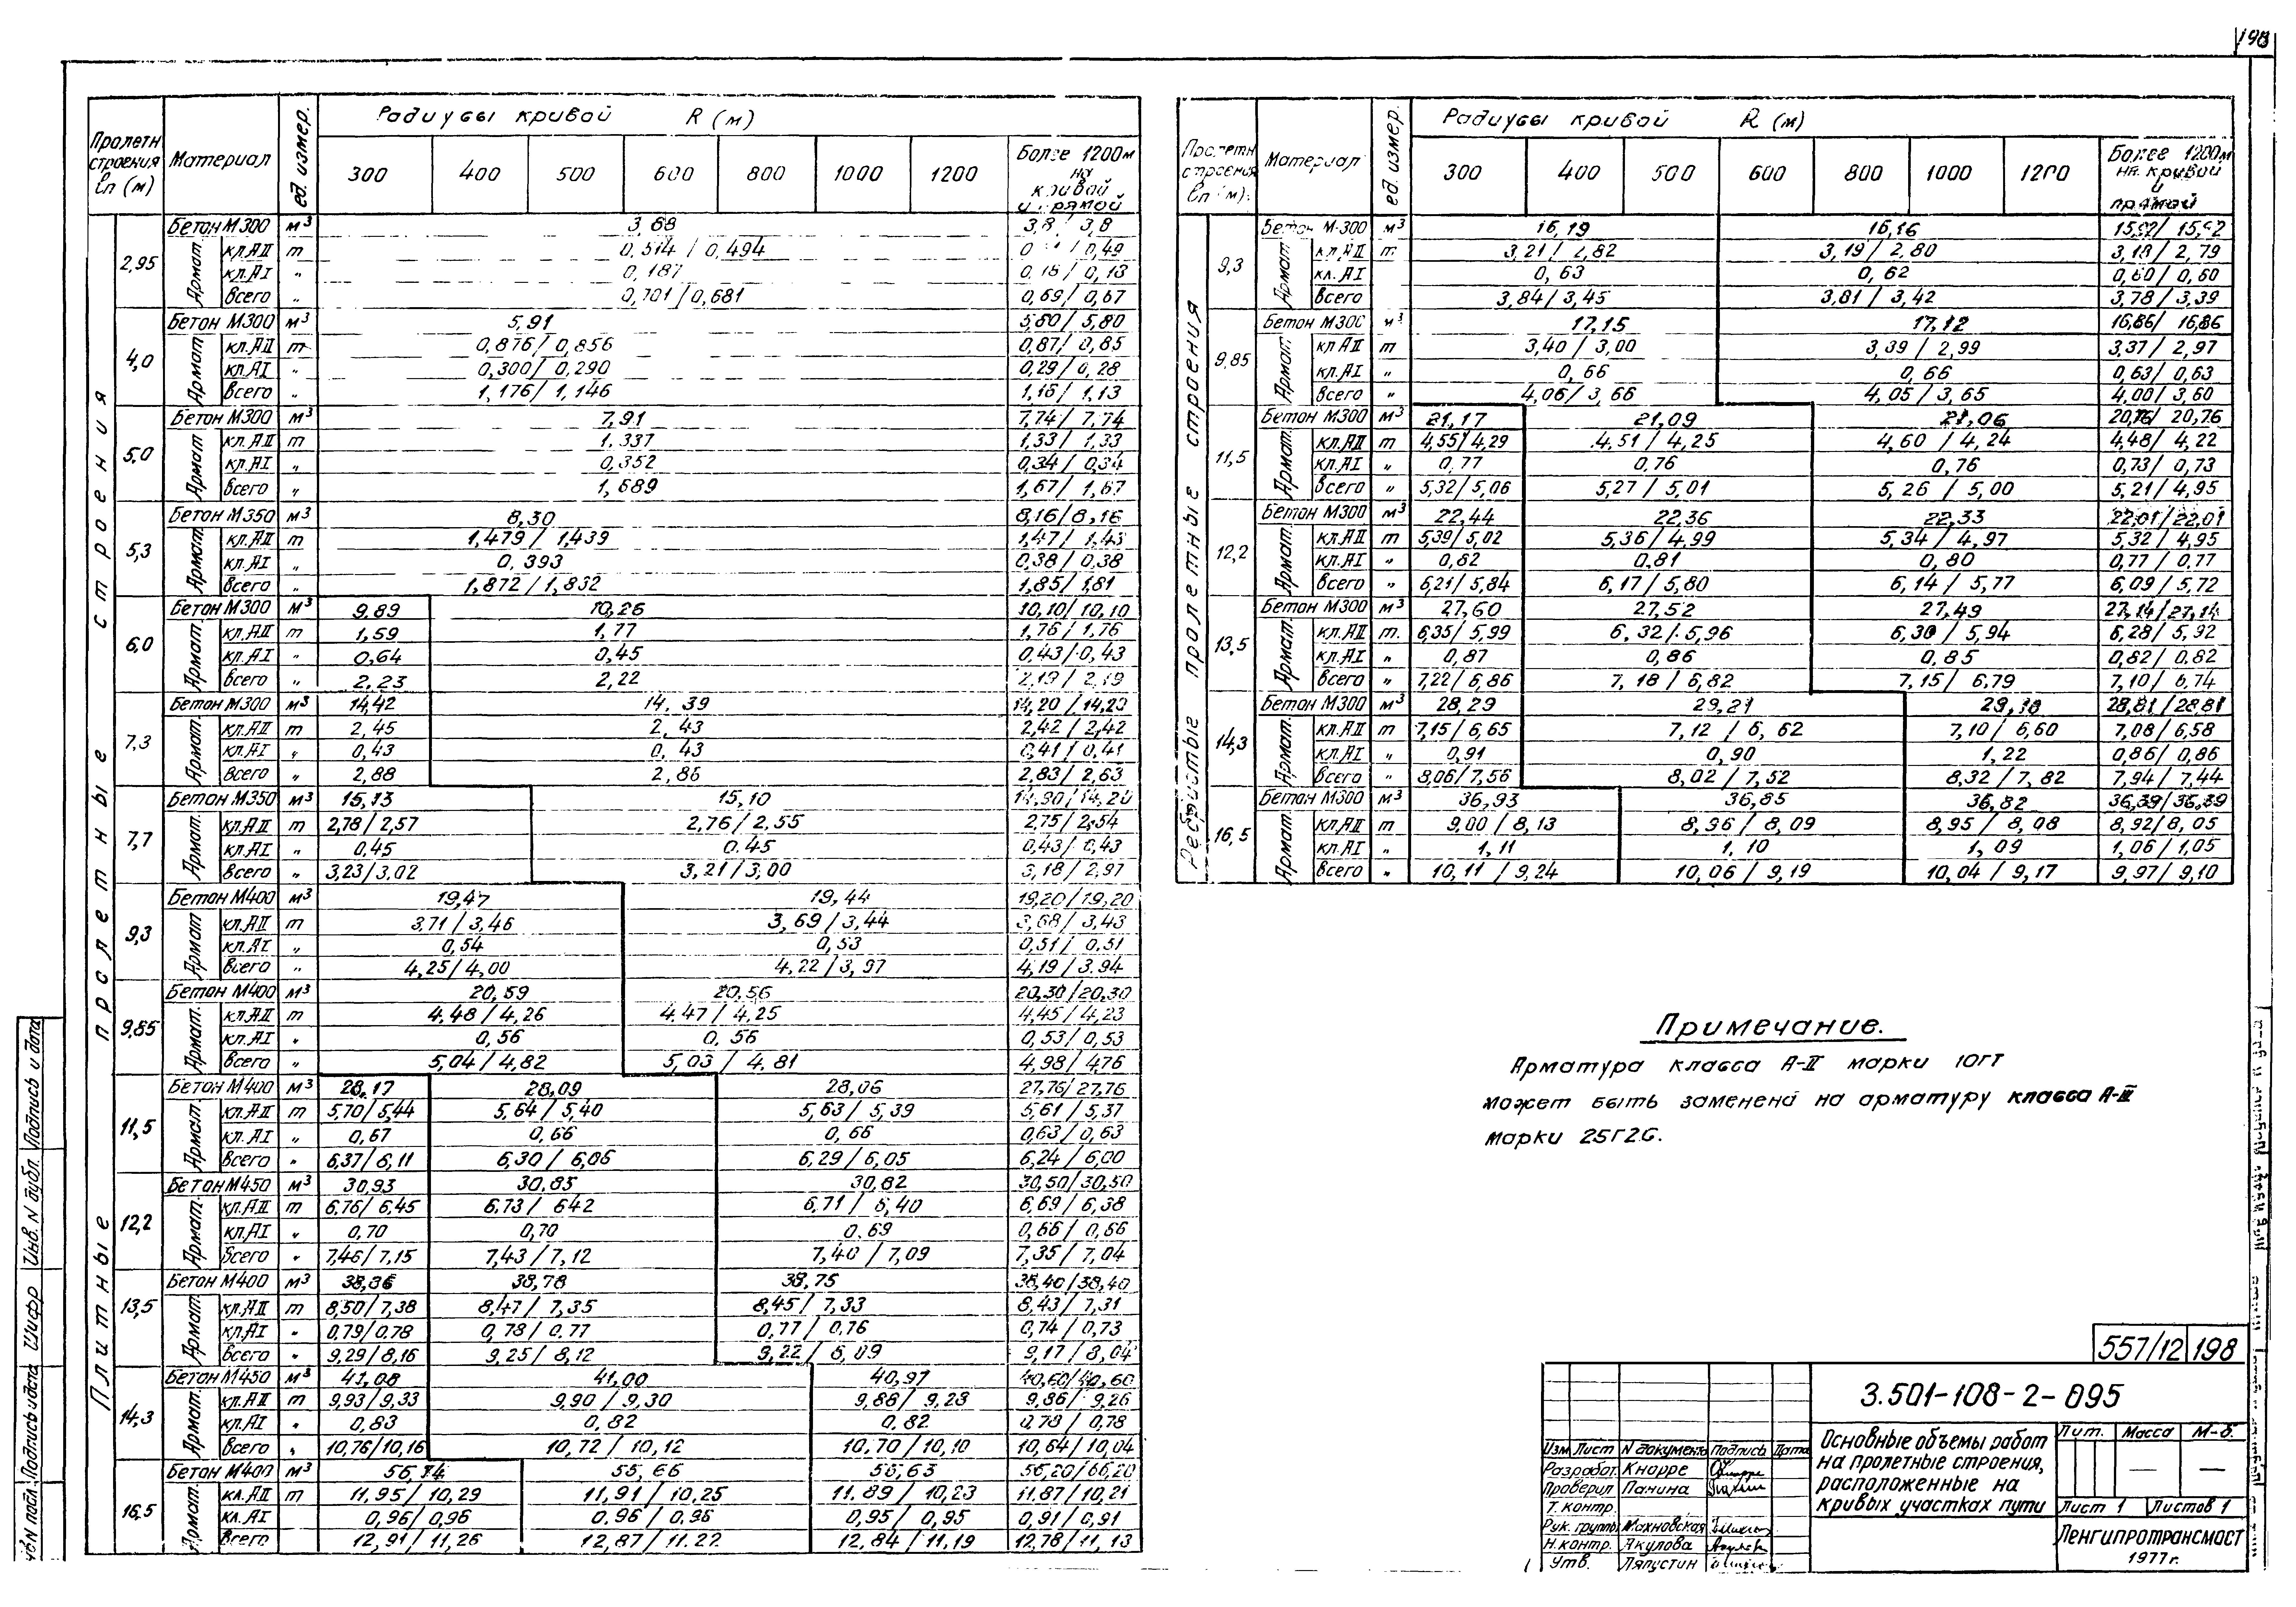 198
Пролетн строения ℓп (м) Материал ед. измер. Радиусы кривой R (м)
300 400 500 600 800 1000 1200 Более 1200м на кривой и прямой
Плитные пролетные строения
2,95 Бетон М300 м³ 3,88
Армат кл.АII т 0,514 / 0,494
кл.АI „ 0,187 0,18 / 0,18
всего „ 0,701 / 0,681 0,69 / 0,67
4,0 Бетон М300 м³ 5,91 5,80 / 5,80
Армат кл.АII т 0,876 / 0,856 0,87 / 0,85
кл.АI „ 0,300 / 0,290 0,29 / 0,28
всего „ 1,176 / 1,146 1,16 / 1,13
5,0 Бетон М300 м³ 7,91 7,74 / 7,74
Армат кл.АII т 1,337 1,33 / 1,33
кл.АI „ 0,352 0,34 / 0,34
всего „ 1,689 1,67 / 1,67
5,3 Бетон М350 м³ 8,30 8,16 / 8,16
Армат кл.АII т 1,479 / 1,439 1,47 / 1,43
кл.АI „ 0,393 0,38 / 0,38
всего „ 1,872 / 1,832 1,85 / 1,81
6,0 Бетон М300 м³ 9,89 10,26 10,10 / 10,10
Армат. кл.АII т 1,59 1,77 1,76 / 1,76
кл.АI „ 0,64 0,45 0,43 / 0,43
всего „ 2,23 2,22 2,19 / 2,19
7,3 Бетон М300 м³ 14,42 14,39 14,20 / 14,20
Армат. кл.АII т 2,45 2,43 2,42 / 2,42
кл.АI „ 0,43 0,43 0,41 / 0,41
всего „ 2,88 2,86 2,83 / 2,63
7,7 Бетон М350 м³ 15,13 15,10 14,90 / 14,20
Армат. кл.АII т 2,78 / 2,57 2,76 / 2,55 2,75 / 2,54
кл.АI „ 0,45 0.45 0,43 / 0,43
всего „ 3,23 / 3,02 3,21 / 3,00 3,18 / 2,97
9,3 Бетон М400 м³ 19,47 19,44 19,20 / 19,20
Армат кл.АII т 3,71 / 3,46 3,69 / 3,44 3,68 / 3,43
кл.АI „ 0,54 0,53 0,51 / 0,51
всего „ 4,25 / 4,00 4,22 / 3,97 4,19 / 3.94
9,85 Бетон М400 м³ 20,59 20,56 20,30 / 20,30
Армат. кл.АII т 4,48 / 4,26 4.47 / 4,25 4,45 / 4,23
кл.АI „ 0,56 0,56 0,53 / 0,53
всего „ 5,04 / 4,82 5,03 / 4,81 4,98 / 476
11,5 Бетон М400 м³ 28,17 28,09 28,06 27,76 / 27,76
Армат. кл.АII т 5,70 / 5,44 5,64 / 5,40 5,63 / 5,39 5,61 / 5,37
кл.АI „ 0,67 0,66 0,66 0,63 / 0,63
всего „ 6,37 / 6,11 6,30 / 6,06 6,29 / 6,05 6,24 / 6,00
12,2 Бетон М450 м³ 30,93 30,85 30,82 30,50 / 30,50
Армат. кл.АII т 6,76 / 6,45 6.73 / 642 6,71 / 6,40 6,69 / 6,38
кл.АI „ 0,70 0,70 0,69 0,66 / 0,66
всего „ 7,46 / 7,15 7,43 / 7,12 7,40 / 7,09 7,35 / 7,04
13,5 Бетон М400 м³ 38,86 38,78 38,75 38,40 / 38,40
Армат. кл.АII т 8,50 / 7,38 8,47 / 7,35 8,45 / 7,33 8,43 / 7,31
кл.АI „ 0,79 / 0,78 0,78 / 0.77 0,77 / 0,76 0,74 / 0,73
всего „ 9,29 / 8,16 9,25 / 8,12 9,22 / 8,09 9,17 / 8,04
14,3 Бетон М450 м³ 41,08 41,00 40,97 40,60 / 40,60
Армат. кл.АII т 9,93 / 9,33 9,90 / 9,30 9,88 / 9,28 9,86 / 9,26
кл.АI „ 0,83 0,82 0,82 0,78 / 0,78
всего „ 10,76 / 10,16 10,72 / 10,12 10,70 / 10,10 10,64 / 10,04
16,5 Бетон М400 м³ 56,74 55,66 56,63 56,20 / 66,20
Армат. кл.АII т 11,95 / 10,29 11,91 / 10,25 11.89 / 10,23 11.87 / 10,21
кл.АI 0,96 / 0,96 0.96 / 0,96 0,95 / 0,95 0,91 / 0,91
всего 12,91 / 11,26 12,87 / 11.22 12,84 / 11,19 12,78 / 11,13
Пролетн строения ℓп (м). Материал ед. измер. Радиусы кривой R (м)
300 400 500 600 800 1000 1200 Более 1200м на кривой и прямой
Ребристые пролетные строения
9,3 Бетон М-300 м³ 16,19 16,16 15,92 / 15,92
Армат кл.АII т 3,21 / 2,82 3,19 / 2,80 3,18 / 2,79
кл.АI 0,63 0,62 0,60 / 0,60
всего 3,84 / 3,45 3,81 / 3,42 3,78 / 3,39
9,85 Бетон М300 м³ 17,15 17,12 16,86 / 16,86
Армат. кл АII т 3,40 / 3,00 3,39 / 2,99 3,37 / 2,97
кл.АI „ 0,66 0,66 0,63 / 0,63
всего „ 4,06 / 3,66 4,05 / 3,65 4,00 / 3,60
11,5 Бетон М300 м³ 21,17 21,09 21,06 20,76 / 20,76
Армат. кл.АII т 4,55 / 4,29 4,51 / 4,25 4,60 / 4,24 4,48 / 4,22
кл.АI „ 0,77 0,76 0,76 0,73 / 0,73
всего „ 5,32 / 5,06 5,27 / 5,01 5,26 / 5,00 5,21 / 4,95
12,2 Бетон М300 м³ 22,44 22,36 22,33 22,01 / 22,01
Армат. кл.АII т 5,39 / 5,02 5,36 / 4,99 5,34 / 4,97 5,32 / 4,95
кл.АI „ 0,82 0,81 0,80 0,77 / 0,77
всего „ 6,21 / 5,84 6,17 / 5,80 6,14 / 5,77 6,09 / 5,72
13,5 Бетон М300 м³ 27,60 27,52 27,49 27,14 / 27,14
Армат. кл.АII т. 6,35 / 5,99 6,32 / 5,96 6,30 / 5,94 6,28 / 5,92
кл.АI „ 0,87 0,86 0,85 0,82 / 0,82
всего „ 7,22 / 6,86 7,18 / 6,82 7,15 / 6,79 7,10 / 6,74
14,3 Бетон М300 м³ 28,29 29,21 29,18 28,81 / 28,81
Армат. кл.АII т 7,15 / 6,65 7,12 / 6,62 7,10 / 6,60 7,08 / 6,58
кл.АI „ 0,91 0,90 1,22 0,86 / 0,86
всего „ 8,06 / 7,56 8,02 / 7,52 8,32 / 7,82 7,94 / 7,44
16,5 Бетон М300 м³ 36,93 36,85 36,82 36,39 / 36,39
Армат. кл.АII т 9,00 / 8,13 8,96 / 8,09 8,95 / 8,08 8,92 / 8,05
кл.АI „ 1,11 1,10 1,09 1,06 / 1,05
всего „ 10,11 / 9,24 10,06 / 9,19 10,04 / 9,17 9,97 / 9,10
Примечание.
Арматура класса А-II марки 10ГТ
может быть заменена на арматуру класса А-III
марки 25Г2С.
557/12 198
3.501-108-2-095
Основные объемы работ на пролетные строения, расположенные на кривых участках пути
Лит. Масса М-б.
— —
Лист 1 Листов 1
Ленгипротрансмост
1977г.
Изм Лист N документа Подпись Дата
Разработ. Кнорре
Проверил Панина
Т. контр.
Рук. группы Махновская
Н.контр. Якулова
Утв. Ляпустин
Инв.N подл. Подпись и дата Шифр Инв. N дубл. Подпись и дата